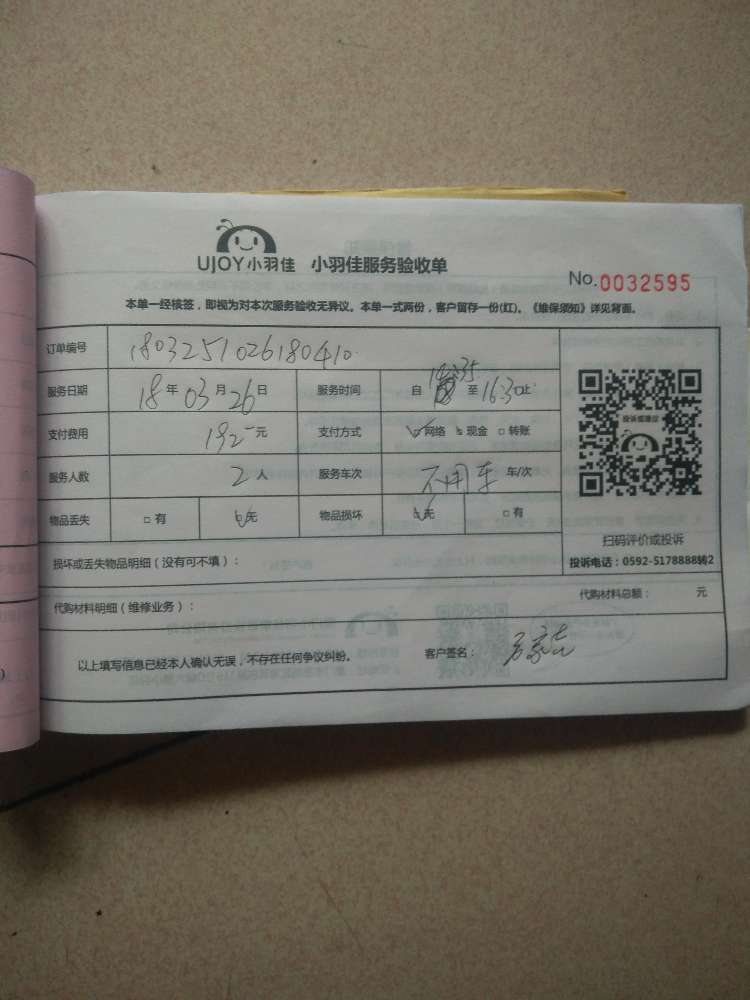 UJOY小羽佳 小羽佳服务验收单
No.0032595
本单一经核签，即视为对本次服务验收无异议。本单一式两份，客户留存一份(红)。《维保须知》详见背面。
订单编号 180325102618040
服务日期 18年03月26日 服务时间 自 35 至16:30止
支付费用 192元 支付方式 ☑网络 □现金 □转账
服务人数 2人 服务车次 不用车 车/次
物品丢失 □有 ☑无 物品损坏 ☑无 □有
投诉或建议
扫码评价或投诉
投诉电话：0592-5178888转2
损坏或丢失物品明细（没有可不填）：
代购材料明细（维修业务）： 代购材料总额： 元
以上填写信息已经本人确认无误，不存在任何争议纠纷。 客户签名：